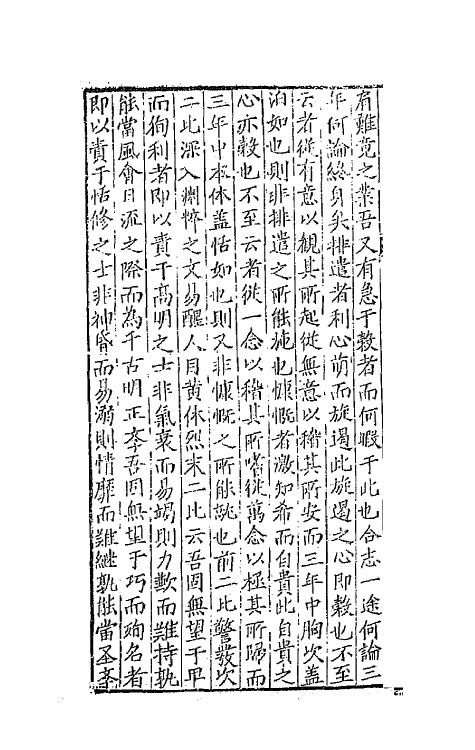 有難竟之業吾又有急于穀者而何暇于此也合志一途何論三
年何論終身矣排遣者利心萌而旋遏此旋遏之心即穀也不至
云者從有意以觀其所起從無意以稽其所安而三年中胸次蓋
泊如也則非排遣之所能施也慷慨者激知希而自貴此自貴之
心亦穀也不至云者從一念以稽其所嗜從萬念以極其所歸而
三年中衾休蓋恬如也則又非慷慨之所能託也前二比警敏次
二比深入淵悴之文易醒人目黃休烈末二比云吾固無望于卑
而徇利者即以責于高明之士非氣衰而易竭則力歉而難持孰
能當風會日流之際而為千古明正學吾固無望于巧而殉名者
即以責于恬修之士非神昏而易溺則情靡而難繼孰能當聖學